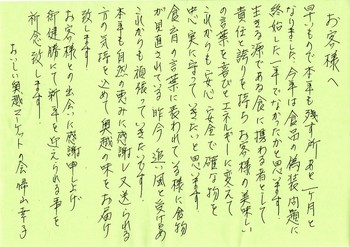 お客様へ
早いもので本年も残す所あと一ヶ月と
なりました。今年は食品の偽装問題に
終始した一年でなかったかと思います。
生きる源である食に携わる者として
責任と誇りを持ちお客様の美味しい
の言葉を喜びとエネルギーに変えて
これからも安心安全で確な物を
忠実に守って いきたいと思います。
食育の言葉に表われている様に食物
が見直されている昨今 追い風と受けとめ
これからも頑張っていきたいです。
本年も自然の恵みに感謝し又送られる
方の気持を込めて 奥越の味をお届け
致します。
お客様との出会いに感謝申し上げ
御健勝にて新年を迎えられる事を
祈念致します。
おいしい奥越マーケットの会 幸子